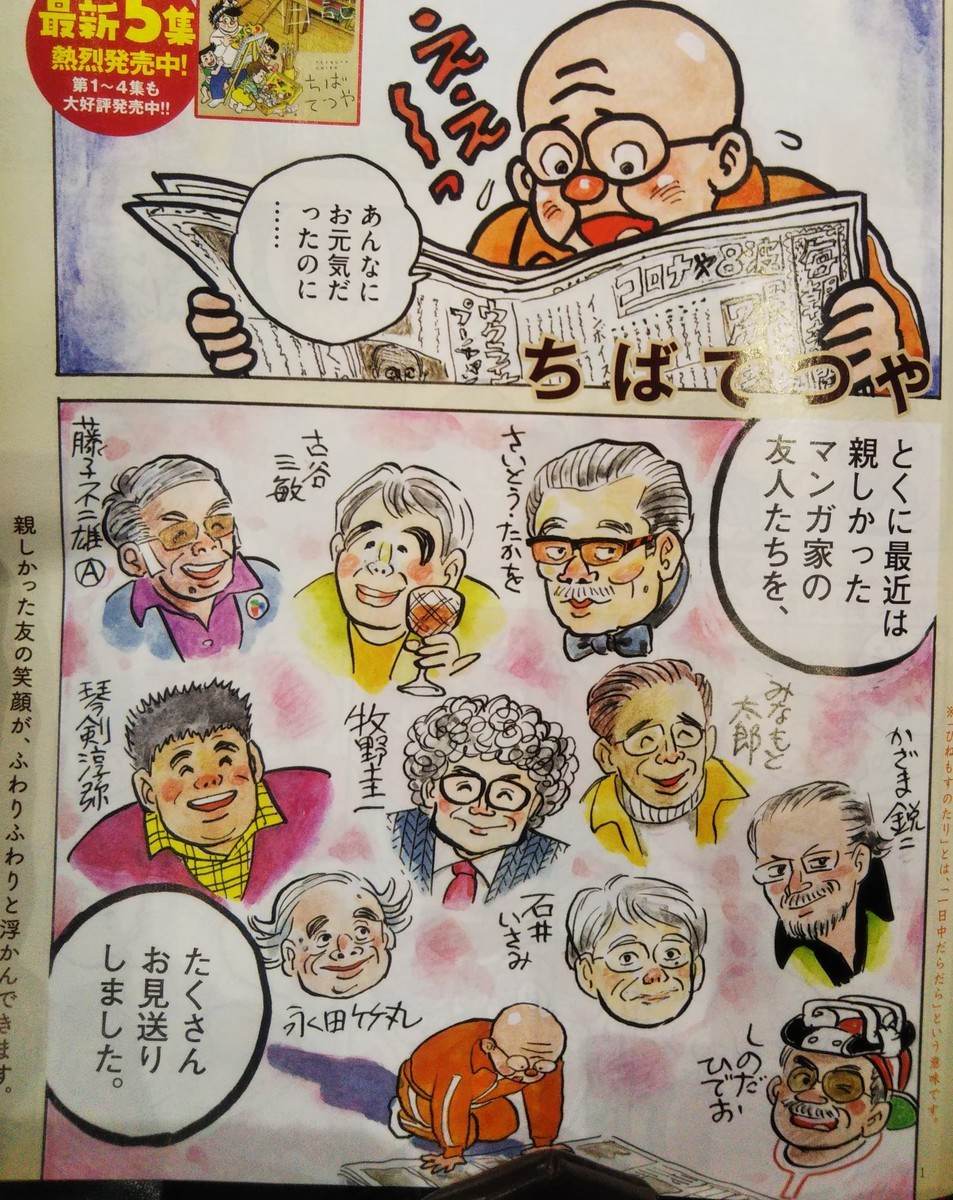 最新5集
熱烈発売中!
第1~4集も
大好評発売中!!
日記
ちば
てつや
ええぇ~っ
あんなに
お元気だ
ったのに
……
コロナ 8波
ウクライナ
ちばてつや
とくに最近は
親しかった
マンガ家の
友人たちを、
さいとう・たかを
古谷
三敏
藤子不二雄Ⓐ
かざま鋭二
みなもと
太郎
牧野圭一
琴剣淳弥
石井
いさみ
永田竹丸
しのだ
ひでお
たくさん
お見送り
しました。
親しかった友の笑顔が、ふわりふわりと浮かんできます。
※「ひねもすのたり」とは、「一日中だらだら」という意味です。
1